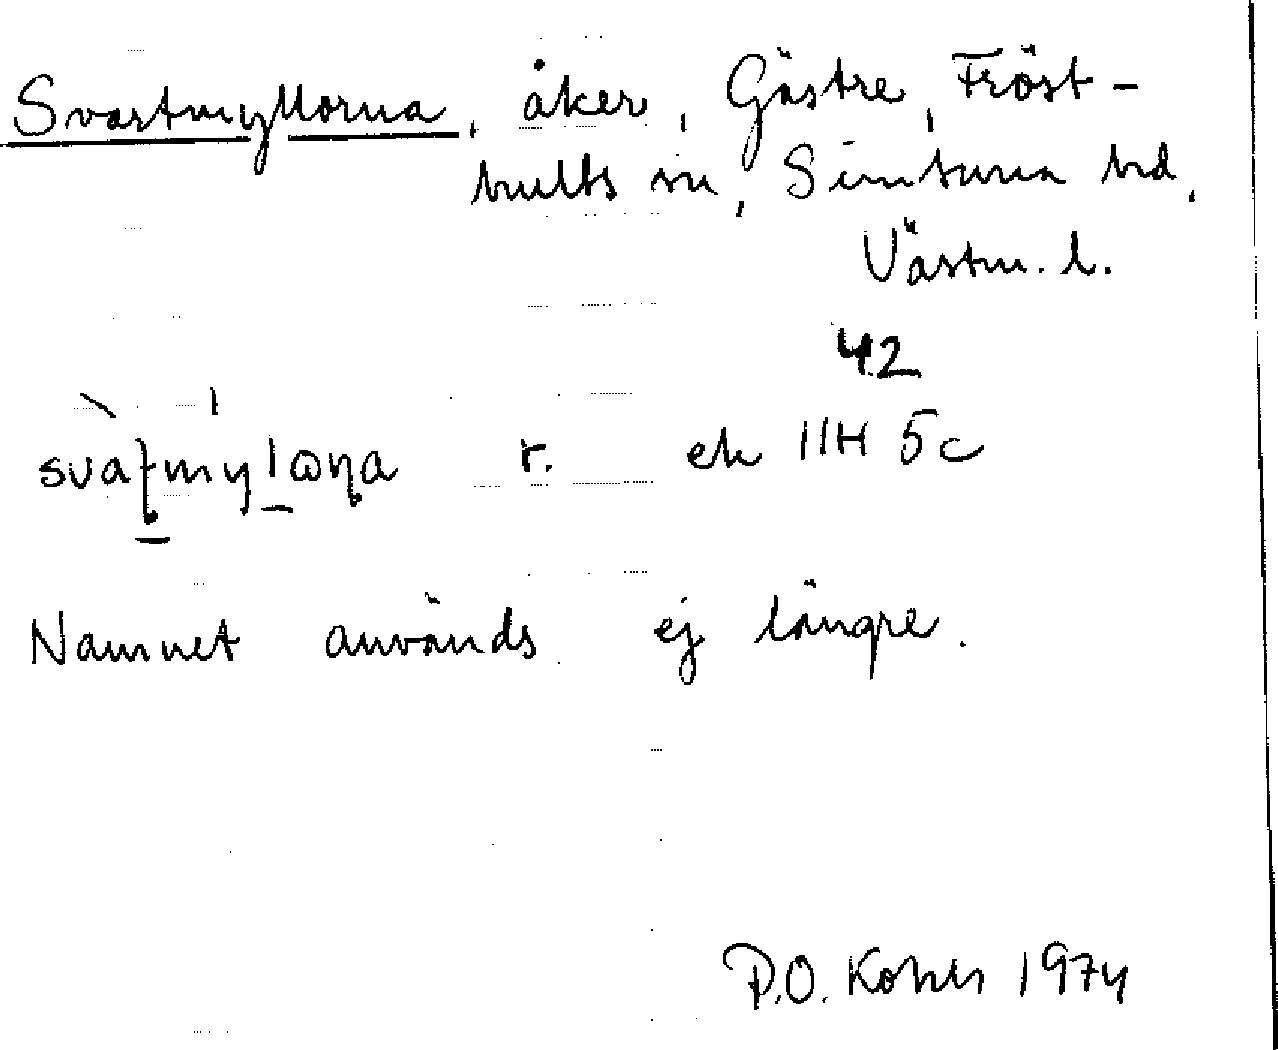 Svartmyllorna, åker, Gästre, Fröst-
hults sn, Simtuna hd,
Västm. l.
42
svaʈmylɷɳa r. ek 11H 5c
Namnet används ej längre.
P.O. 1974